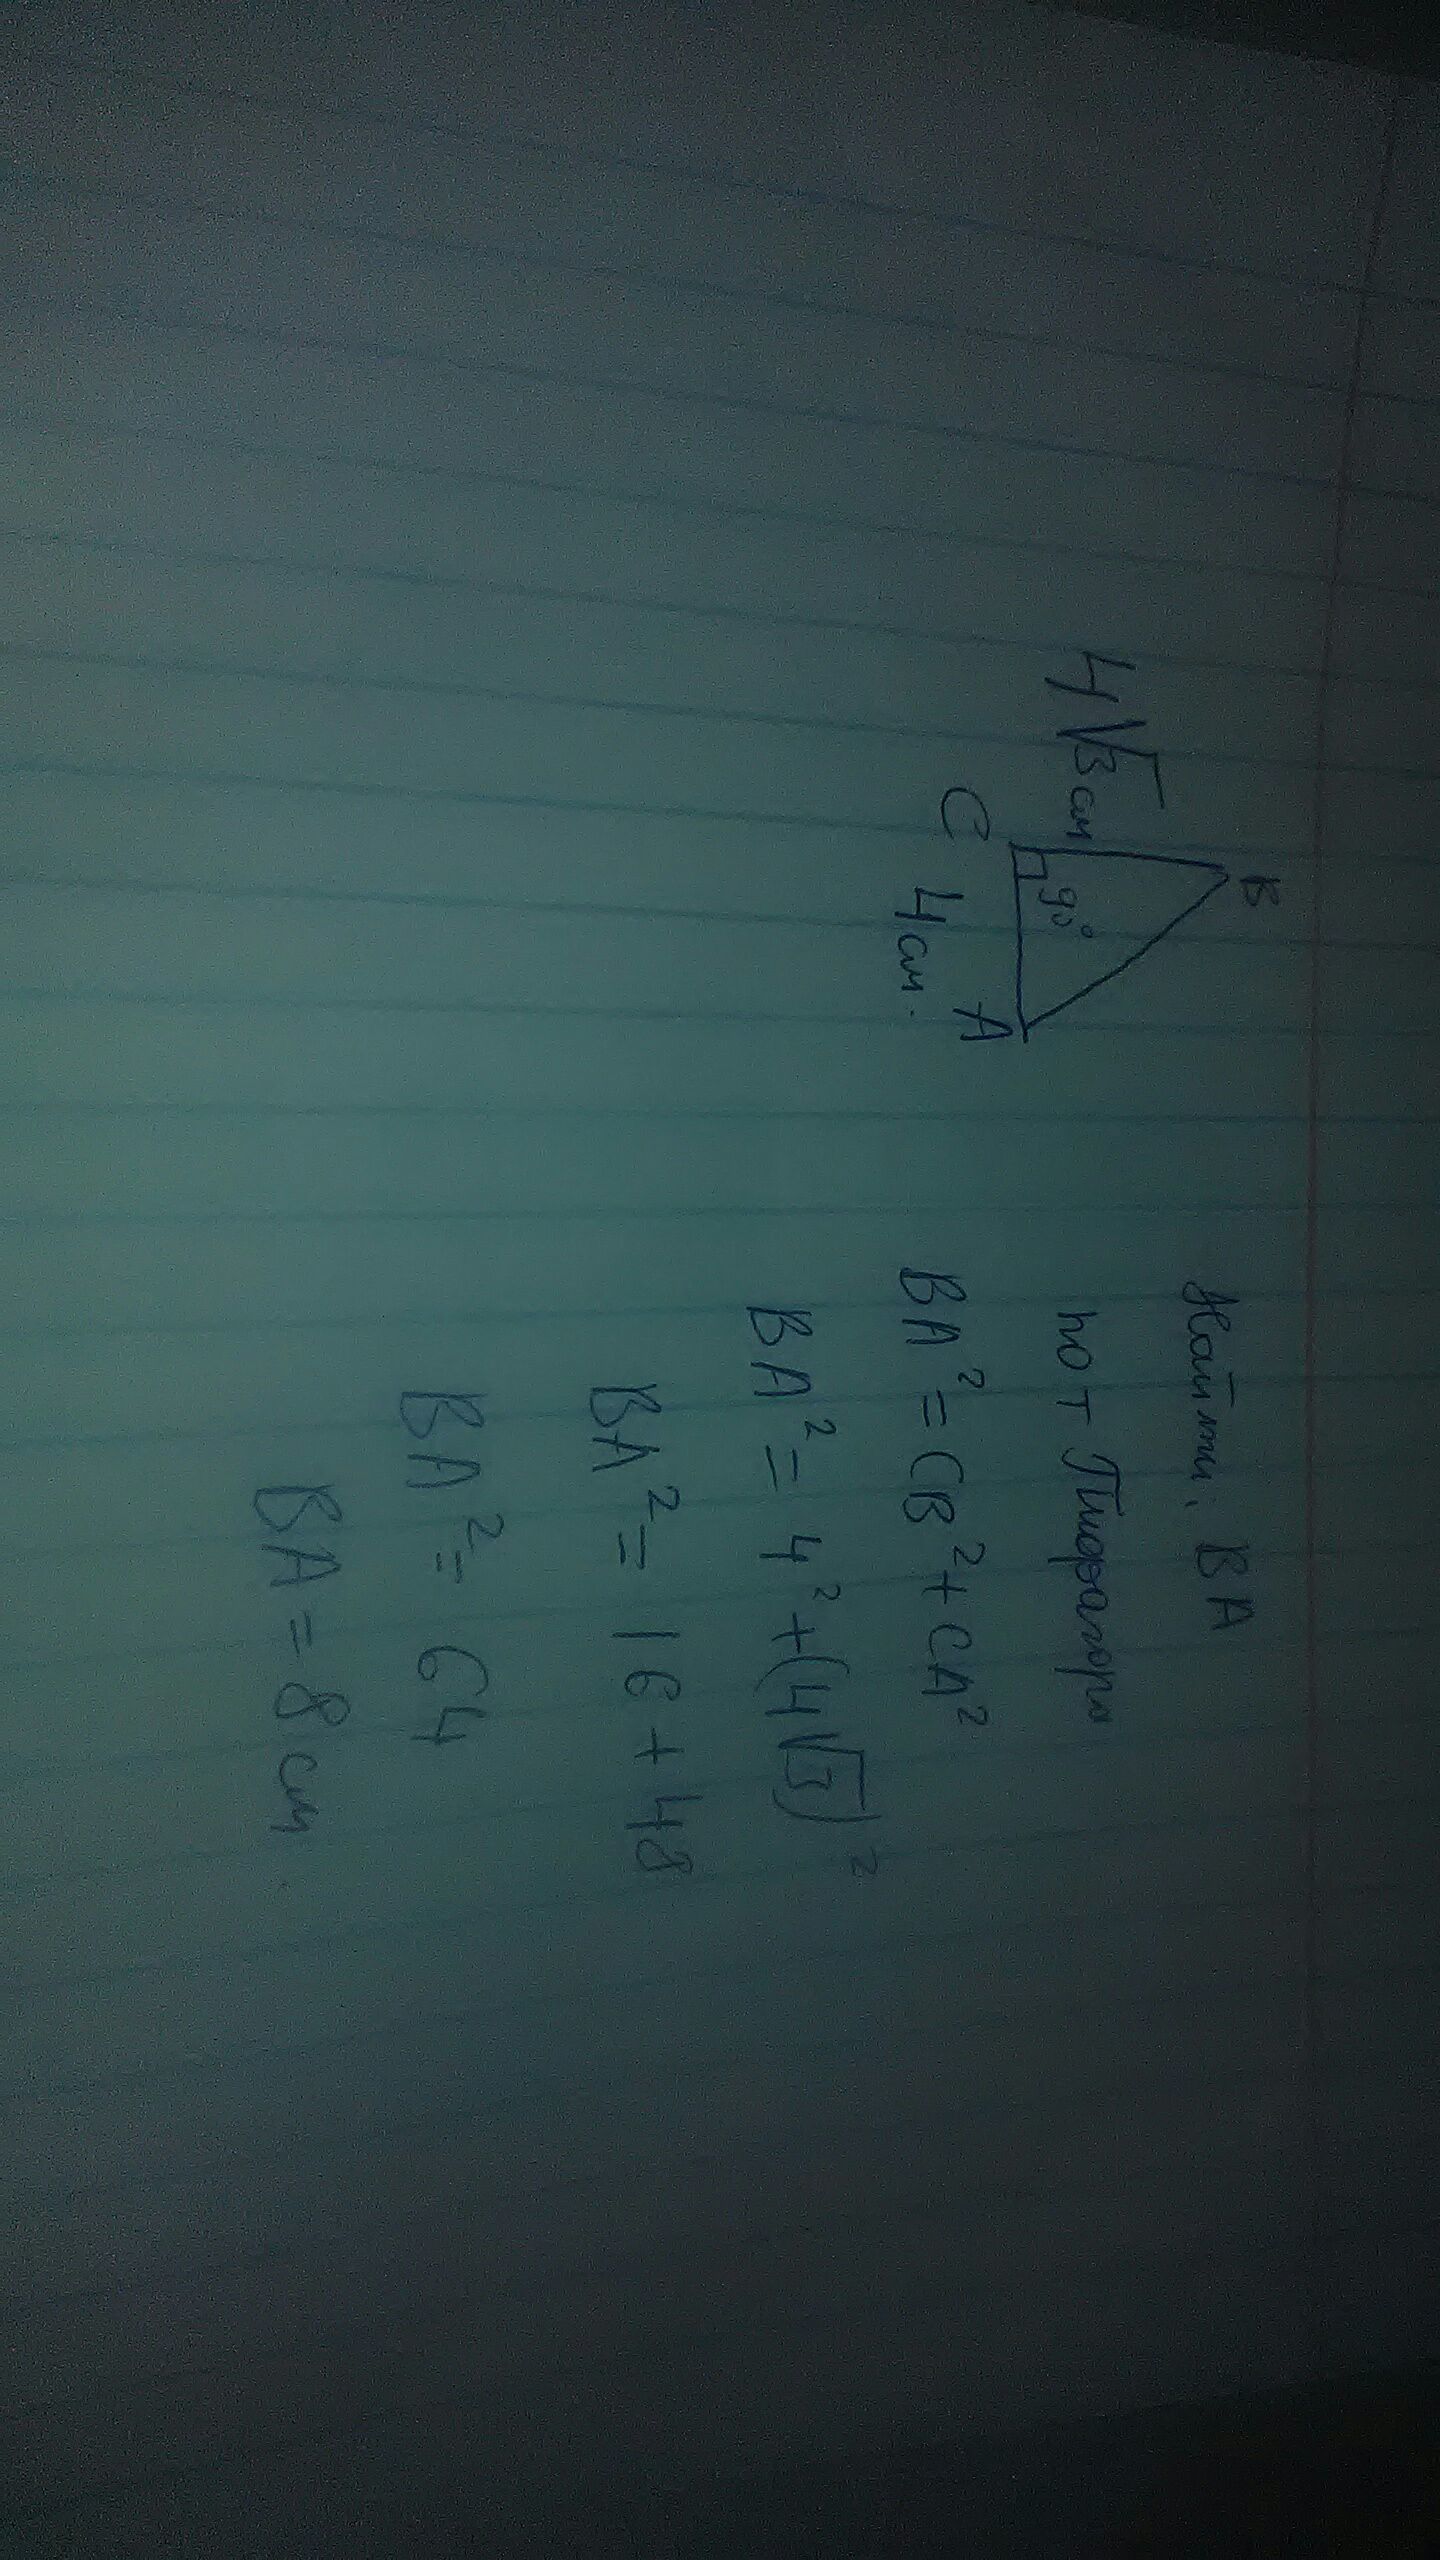 B
4√3 см
90°
C
A
4 см.
Найти: BA
по т Пифагора
BA² = CB² + CA²
BA² = 4² + (4√3)²
BA² = 16 + 48
BA² = 64
BA = 8 см